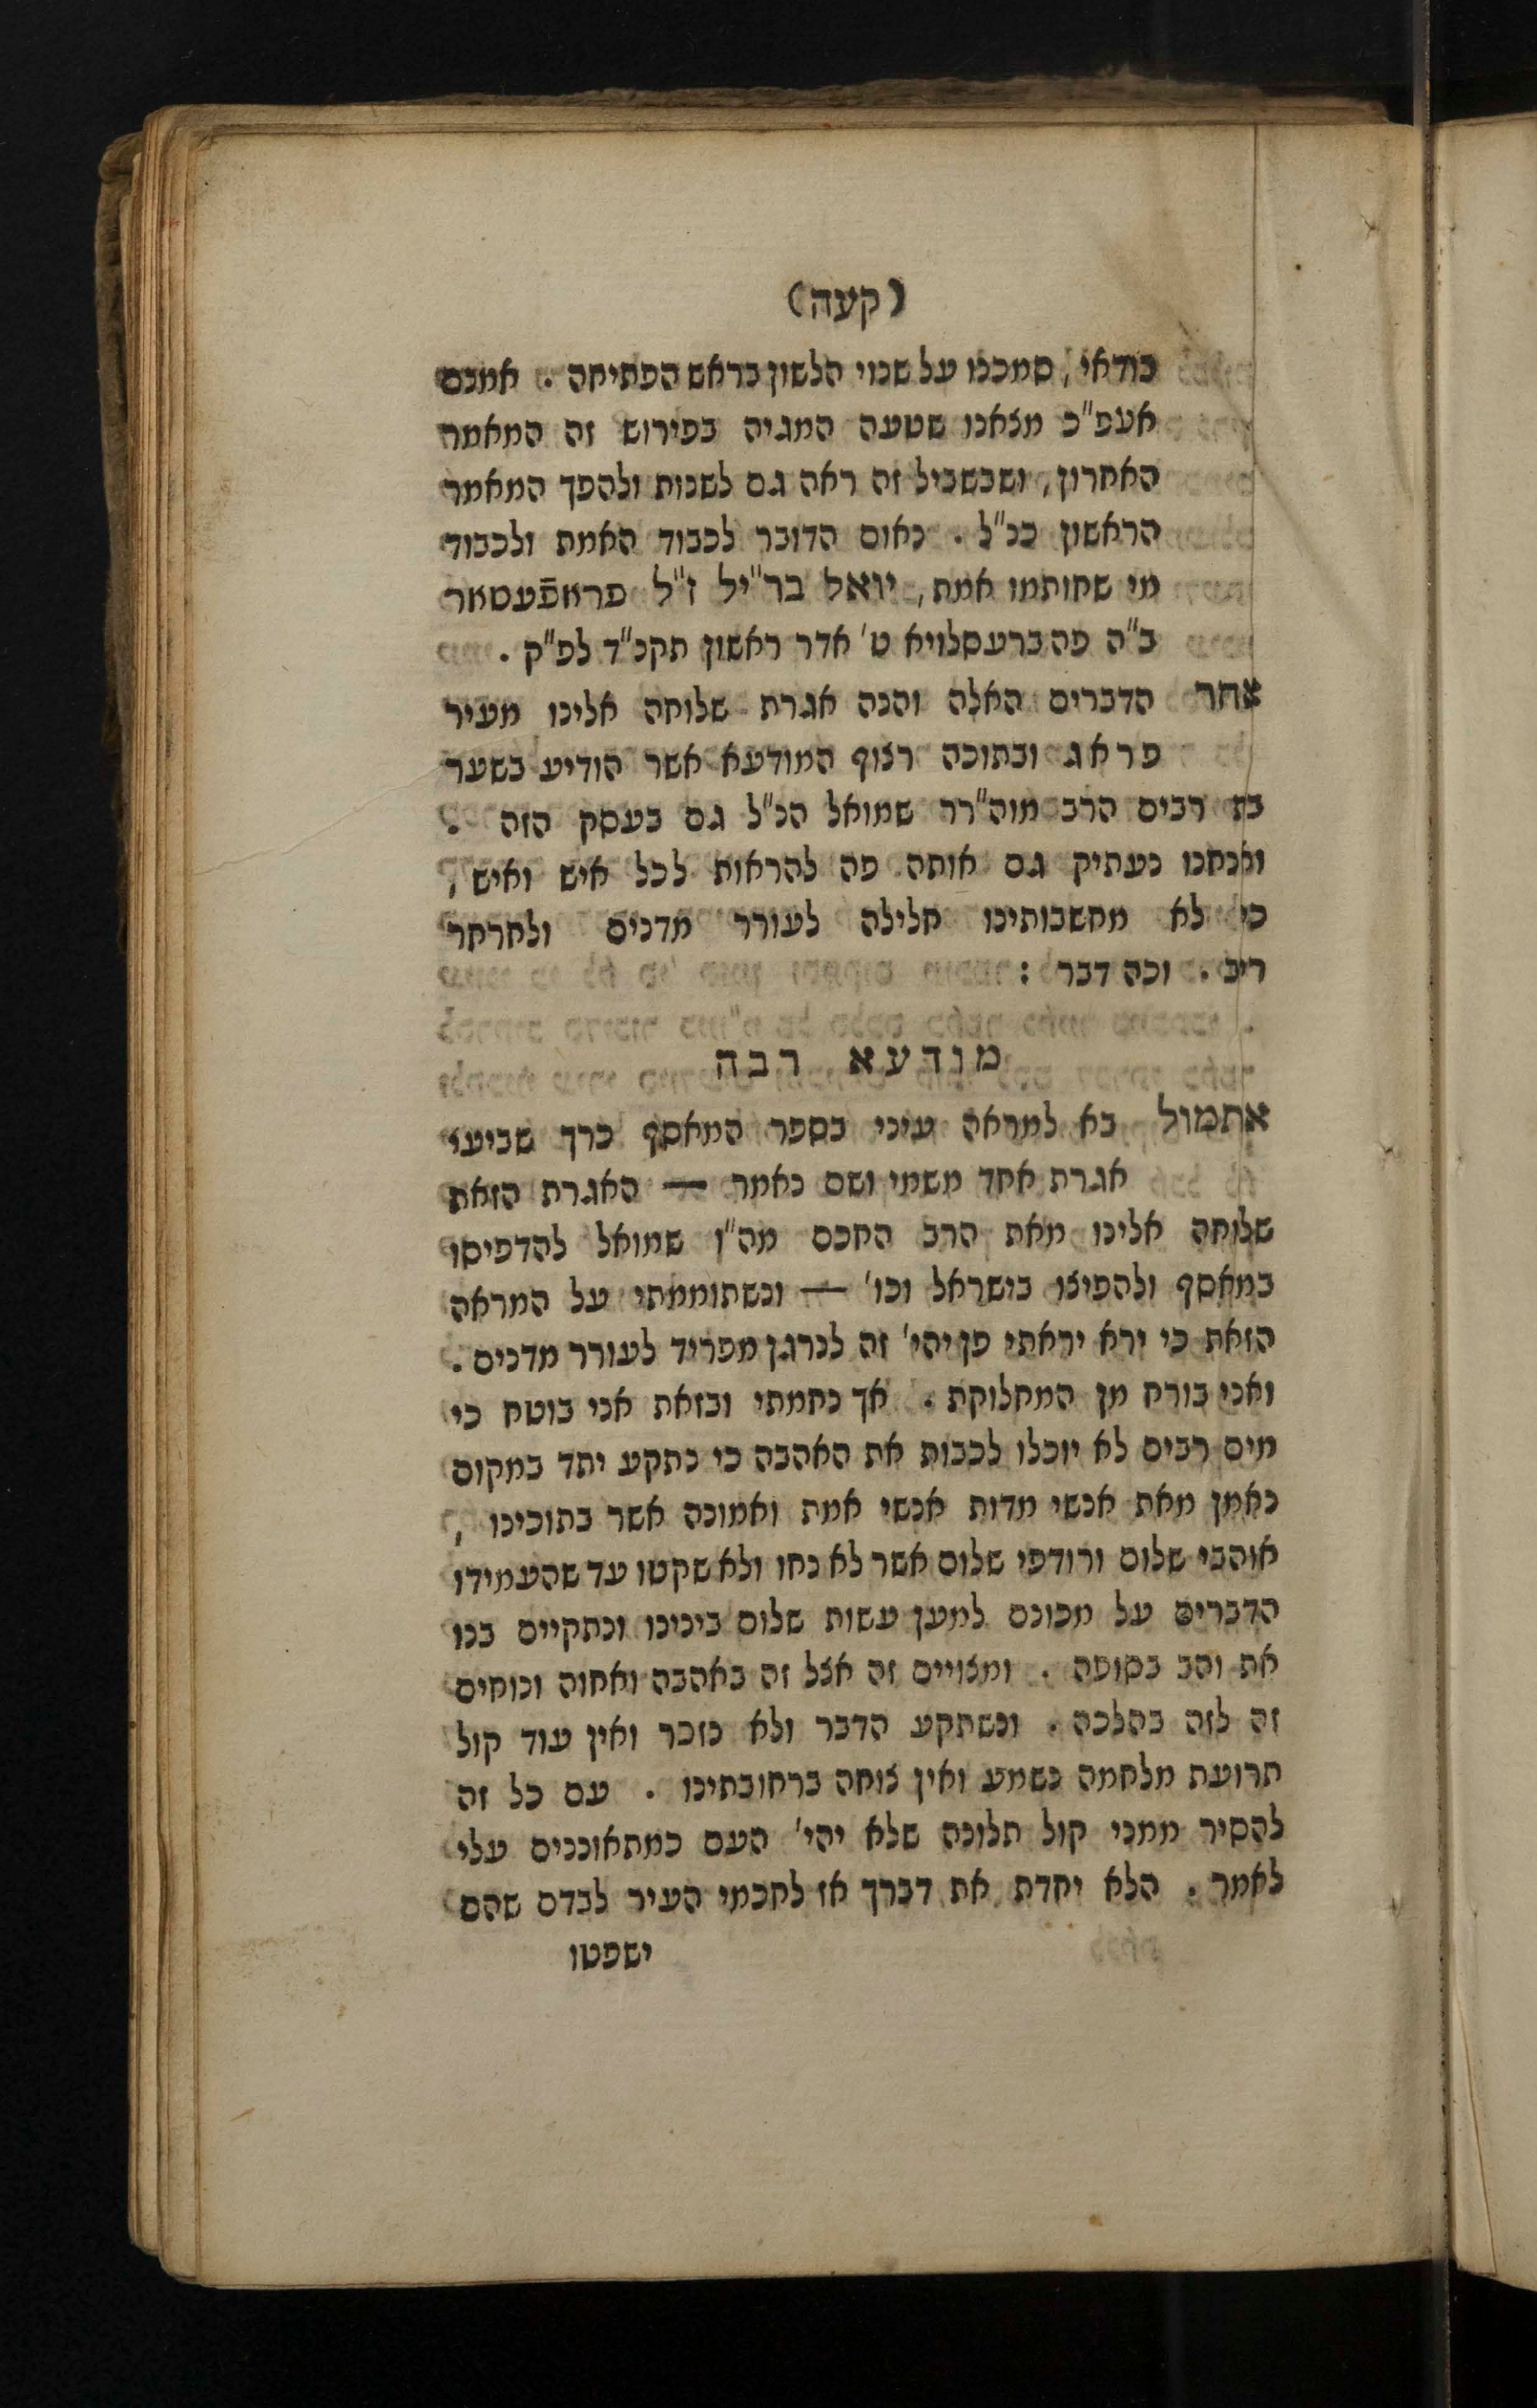 (קעה)
בודאי, סמכנו על שנוי הלשון בראש הפתיחה. אמנם
אעפ"כ מצאנו שטעה המגיה בפירוש זה המאמר
האחרון, ושבשביל זה ראה גם לשנות ולהפך המאמר
הראשון כנ"ל. נאום הדובר לכבוד האמת ולכבוד
מי שחותמו אמת, יואל בר"יל ז"ל פראפֿעסאר
ב"ה פה ברעסלויא ט' אדר ראשון תקנ"ד לפ"ק.
אחר הדברים האלה והנה אגרת שלוחה אלינו מעיר
פראג ובתוכה רצוף המודעא אשר הודיע בשער
בת רבים הרב מוה"רר שמואל הנ"ל גם בעסק הזה.
ואנחנו נעתיק גם אותה פה להראות לכל איש ואיש,
כי לא מחשבותינו חלילה לעורר מדנים ולחרחר
ריב. וכה דבר:
מודעא רבה
אתמול בא למראה עיני בספר המאסף כרך שביעי
אגרת אחד משמי ושם נאמר — האגרת הזאת
שלוחה אלינו מאת הרב החכם מה"ו שמואל להדפיסו
במאסף ולהפיצו בישראל וכו' — ונשתוממתי על המראה
הזאת כי ירא יראתי פן יהי' זה לנרגן מפריד לעורר מדנים.
ואני בורח מן המחלוקת. אך נחמתי ובזאת אני בוטח כי
מים רבים לא יוכלו לכבות את האהבה כי נתקע יתד במקום
נאמן מאת אנשי מדות אנשי אמת ואמונה אשר בתוכינו,
אוהבי שלום ורודפי שלום אשר לא נחו ולא שקטו עד שהעמידו
הדברים על מכונם למען עשות שלום בינינו ונתקיים בנו
את והב בסופה. ומצויים זה אצל זה באהבה ואחוה ונוחים
זה לזה בהלכה. ונשתקע הדבר ולא נזכר ואין עוד קול
תרועת מלחמה נשמע ואין צוחה ברחובתינו. עם כל זה
להסיר ממני קול תלונה שלא יהי' העם כמתאוננים עלי
לאמר. הלא יחדת את דברך אז לחכמי העיר לבדם שהם
ישפטו